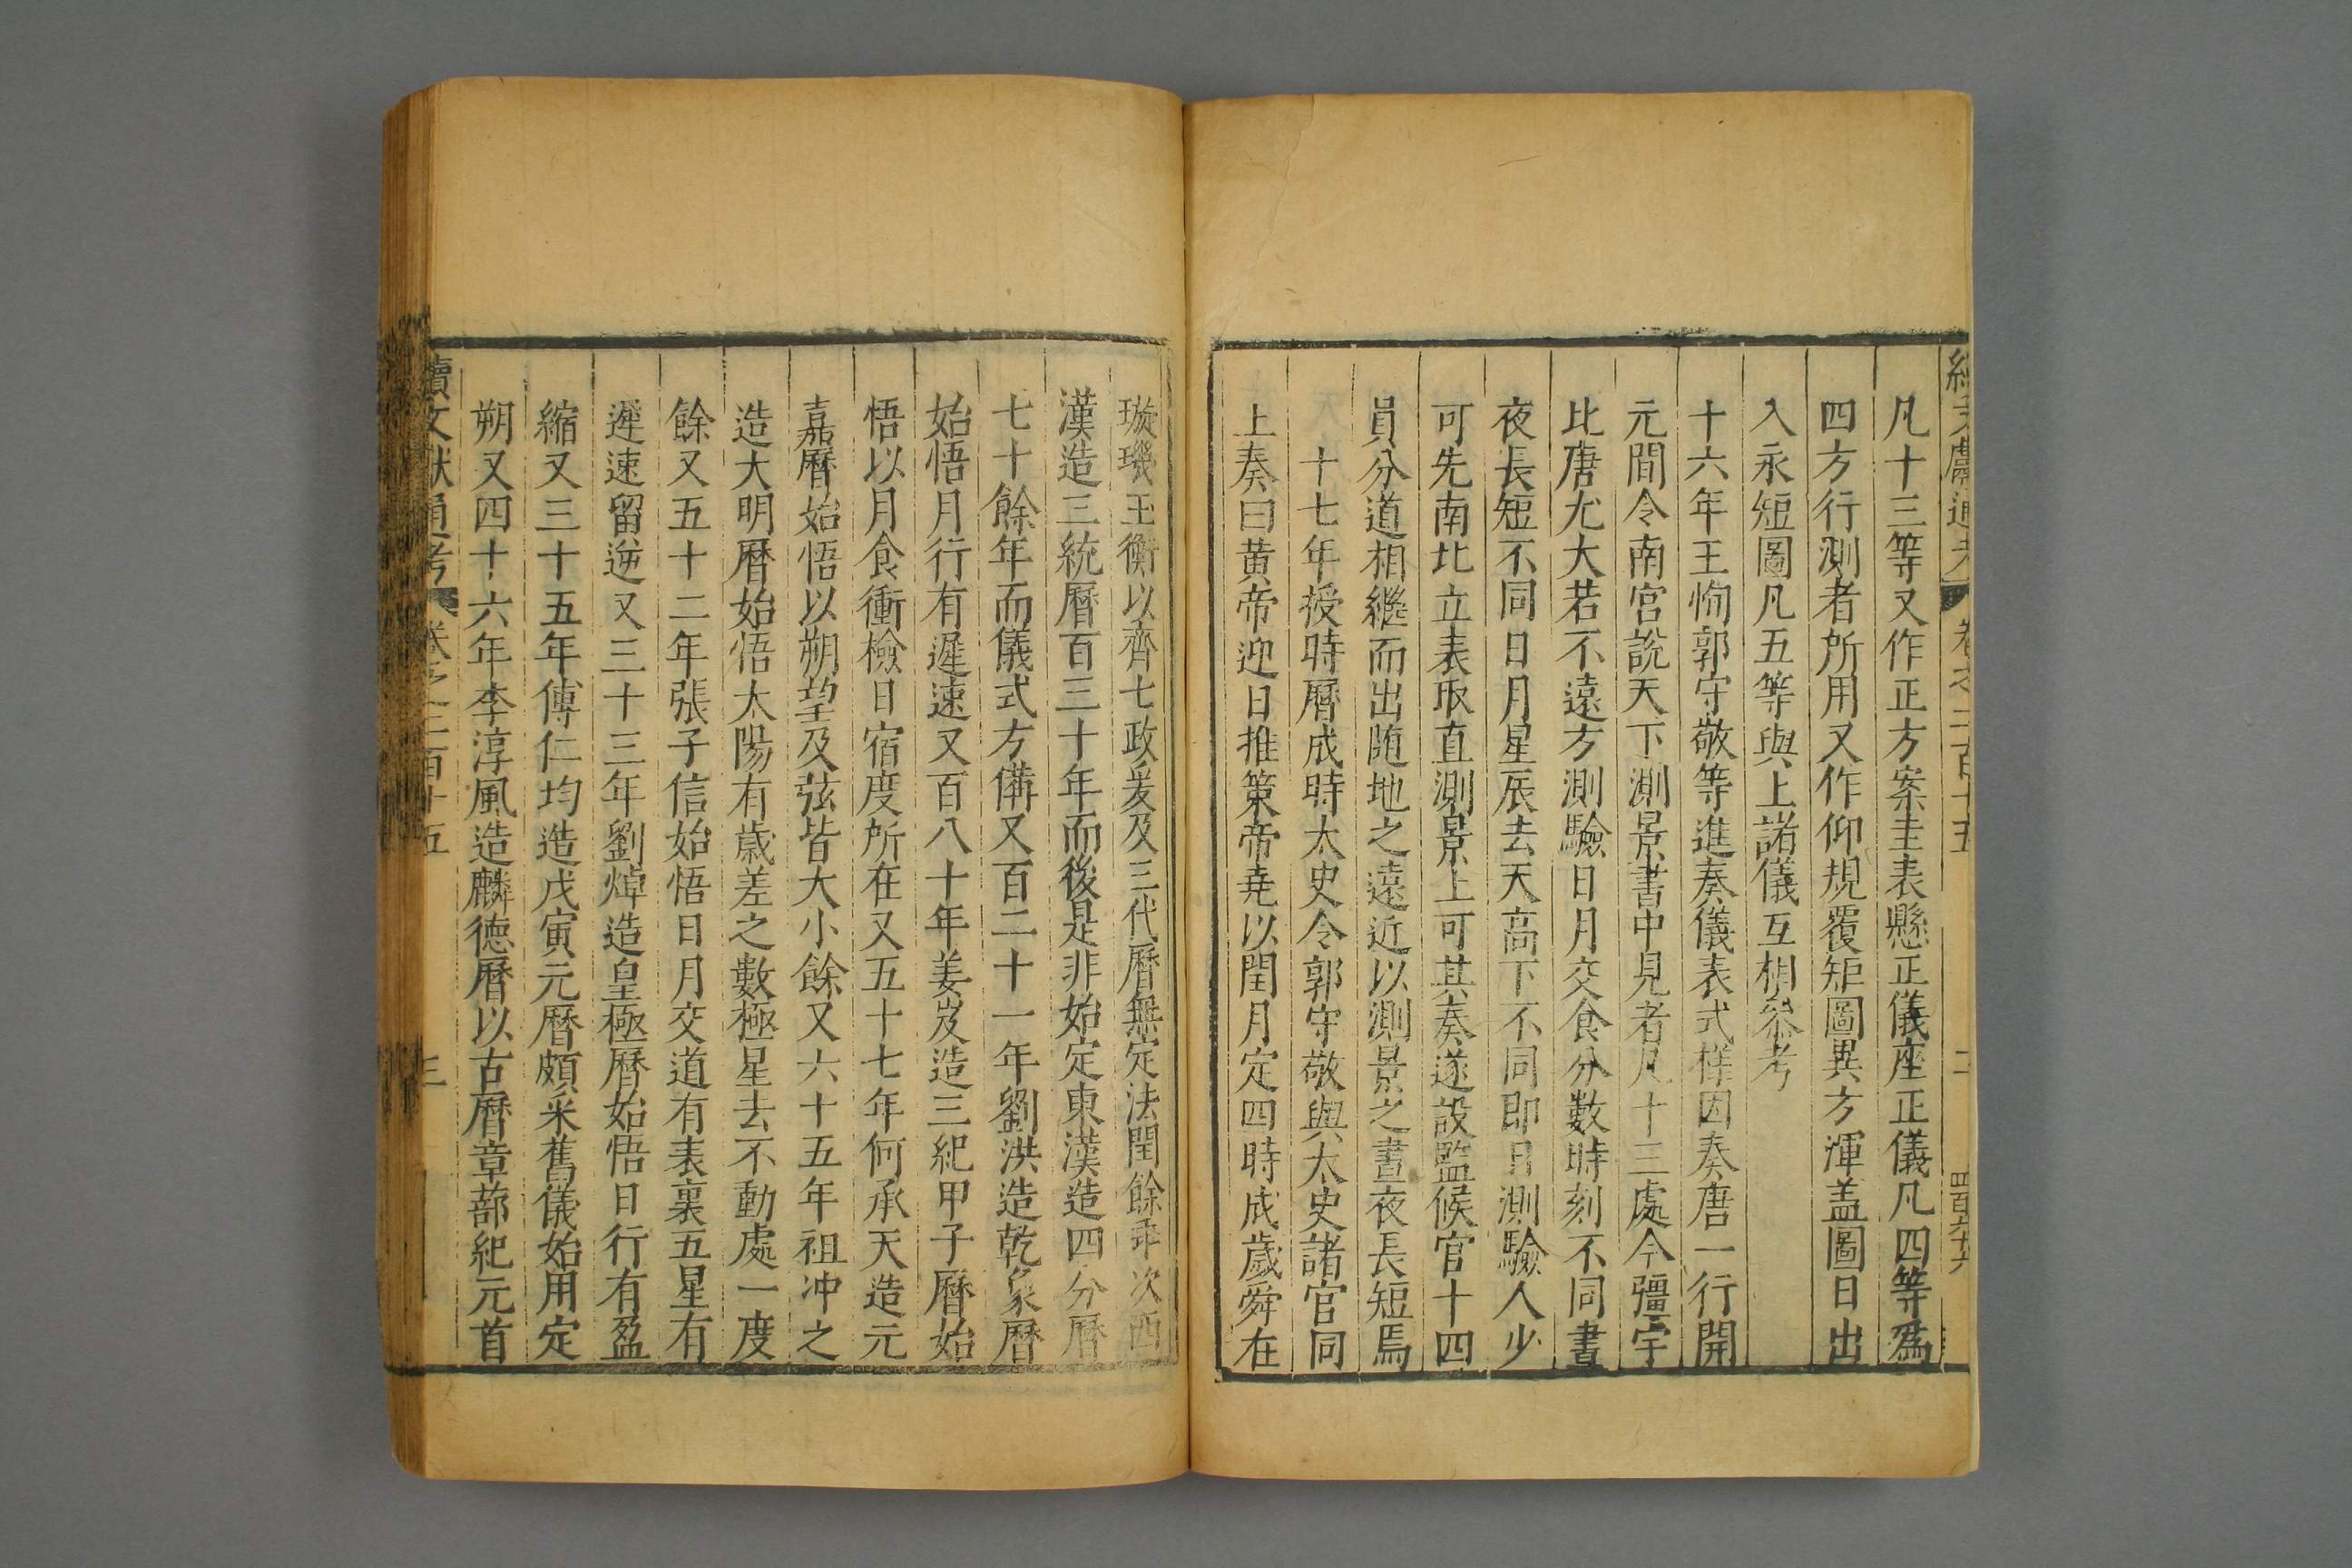 續文獻通考 卷之二百十五 二 四百六十六
凡十三等又作正方案圭表懸正儀座正儀凡四等爲
四方行測者所用又作仰規覆矩圖異方渾盖圖日出
入永短圖凡五等與上諸儀互相叅考
十六年王恂郭守敬等進奏儀表式様因奏唐一行開
元間令南宮說天下測景書中見者凡十三處今彊宇
比唐尤大若不遠方測驗日月交食分數時刻不同晝
夜長短不同日月星辰去天高下不同即日測驗人少
可先南北立表取直測景上可其奏遂設監候官十四
員分道相繼而出随地之遠近以測景之晝夜長短焉
十七年授時曆成時太史令郭守敬與太史諸官同
上奏曰黃帝迎日推策帝尭以閏月定四時成歲舜在
璇璣玉衡以齊七政爰及三代曆無定法閏餘乖次西
漢造三統曆百三十年而後是非始定東漢造四分曆
七十餘年而儀式方備又百二十一年劉洪造乾象曆
始悟月行有遲速又百八十年姜岌造三紀甲子曆始
悟以月食衝檢日宿度所在又五十七年何承天造元
嘉曆始悟以朔望及弦皆大小餘又六十五年祖冲之
造大明曆始悟太陽有歲差之數極星去不動處一度
餘又五十二年張子信始悟日月交道有表裏五星有
遲速留逆又三十三年劉焯造皇極曆始悟日行有盈
縮又三十五年傅仁均造戊寅元曆頗采舊儀始用定
朔又四十六年李淳風造麟德曆以古曆章蔀紀元首
續文獻通考 卷之二百十五 三